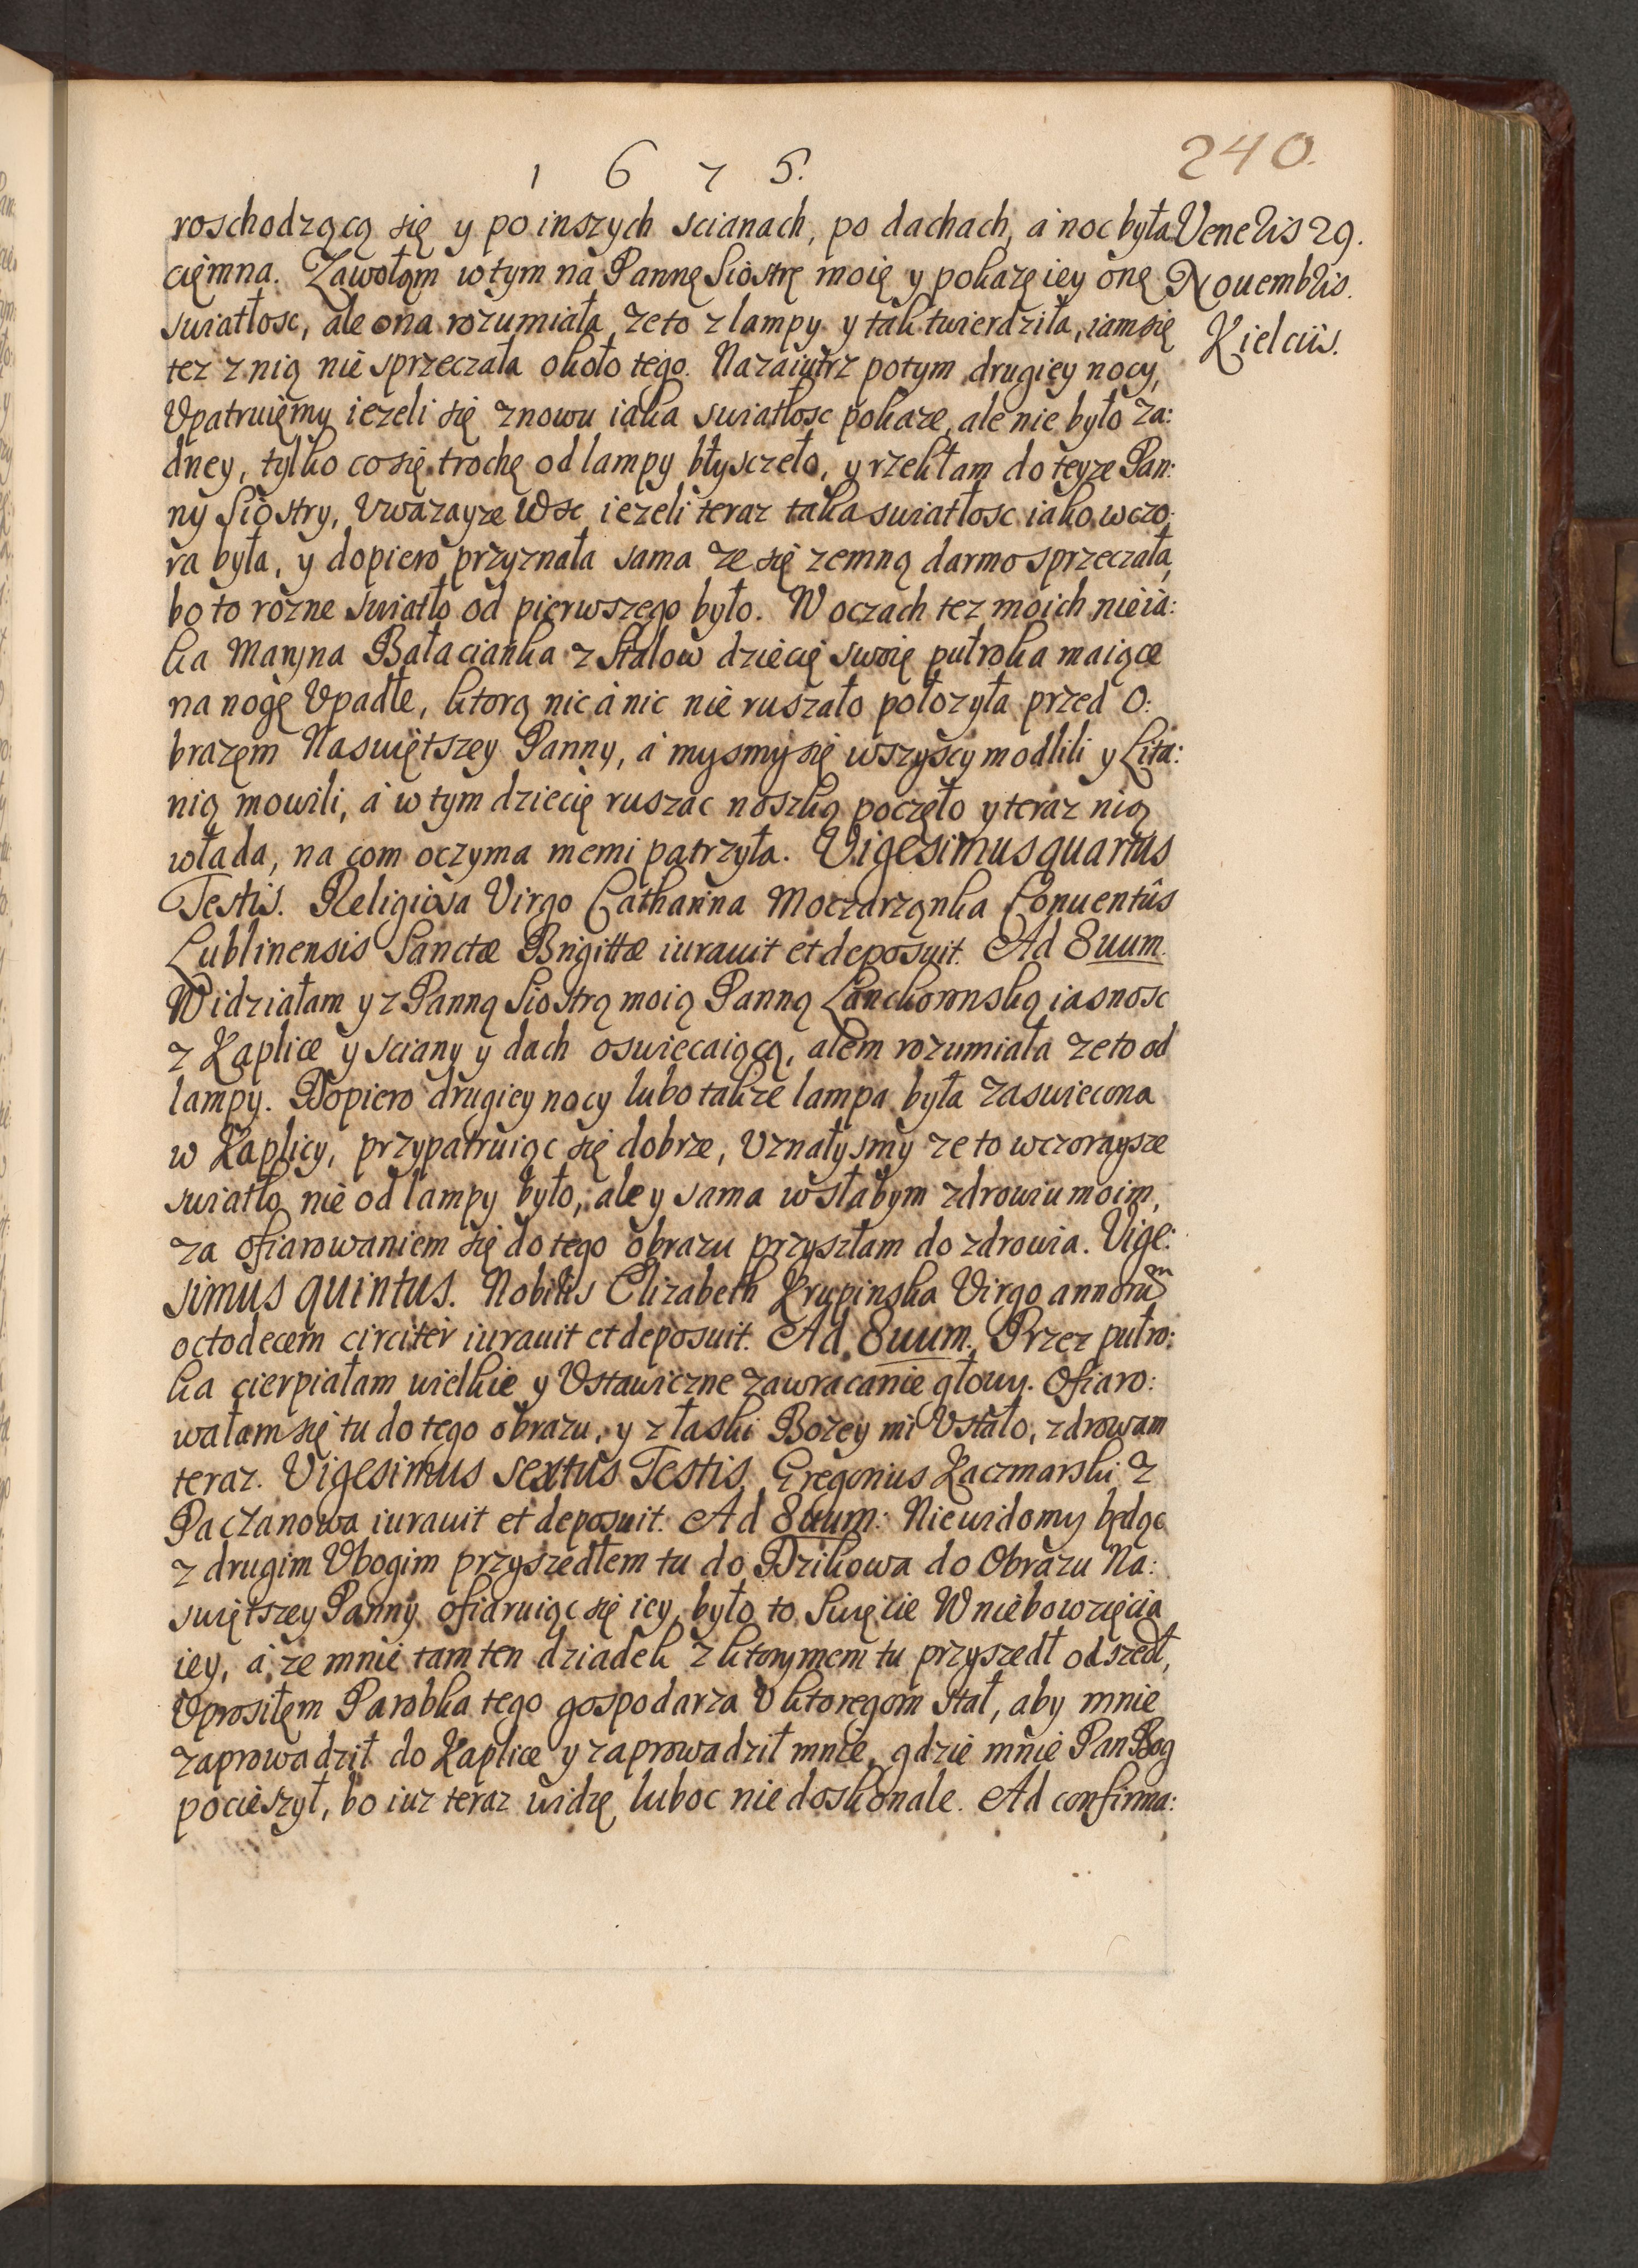 1675.
240.
roschodzącą się y po inszych scianach, po dachach, á noc była
Veneris 29.
Nouembris.
Kielciis.
cięmna. Zawołąm w tym na Pannę Siostrę moię y pokazę iey onę
swiatłosc, ale ona rozumiała, ze to z lampy y tak twierdziła, iam się
tez z nią nie sprzeczała około tego. Nazaiutrz potym drugiey nocy,
Vpatruięmy iezeli się znowu iaka swiatłosc pokaze, ale nie było za:
dney, tylko co się trochę od lampy błysczeło, y rzekłam do teyze Pan:
ny Siostry, Vwazayze Wsc iezeli teraz taka swiatłosc iako wczo:
ra była, y dopiero przyznała sama ze się zemną darmo sprzeczała,
bo to rozne swiatło od pierwszego było. W oczach tez moich nieia:
ka Maryna Bałacianka z Stalow dziecię swoię pułroka maiące
na nogę Vpadłe, ktorą nic á nic nie ruszało połozyła przed O:
brazęm Naswiętszey Panny, á mysmy się wszyscy modlili y Lita:
nią mowili, á w tym dziecię ruszac noszką poczęło y teraz nią
włada, na com oczyma memi patrzyła. Vigesimus quartus
Testis. Religiosa Virgo Catharina Moczarząnka Conuentûs
Lublinensis Sanctæ Brigittæ iurauit et deposuit. Ad 8uum.
Widziałam y z Panną Siostrą moią Panną Lanckoronską iasnosc
z Kaplice y sciany y dach oswiecaiącą, alem rozumiała ze to od
lampy. Dopiero drugiey nocy lubo takze lampa była zaswiecona
w Kaplicy, przypatruiąc się dobrze, Vznałysmy ze to wczoraysze
swiatło nie od lampy było, ale y sama w słabym zdrowiu moim,
za ofiarowaniem się do tego obrazu przyszłam do zdrowia. Vige:
simus quintus. Nobilis Elizabeth Krupinska Virgo annorũ
octodecem circiter iurauit et deposuit. Ad 8uum. Przez pułro:
ka cierpiałam wielkie y Vstawiczne zawracanie głowy. Ofiaro:
wałam się tu do tego obrazu, y z łaski Bozey mi Vstało, zdrowam
teraz. Vigesimus sextus Testis. Gregorius Kaczmarski z
Paczanowa iurauit et deposuit. Ad 8uum: Niewidomy będąc
z drugim Vbogim przyszedłem tu do Dzikowa do Obrazu Na:
swiętszey Panny ofiaruiąc się iey, było to Swięcie Wniebowzięcia
iey, á ze mnie tamten dziadek z ktorymem tu przyszedł odszedł,
Vprosiłem Parobka tego gospodarza V ktoregom stał, aby mnie
zaprowadził do Kaplice y zaprowadził mnie, gdzie mnie Pan Bog
pocieszył, bo iuz teraz widzę luboc nie doskonale. Ad confirma: